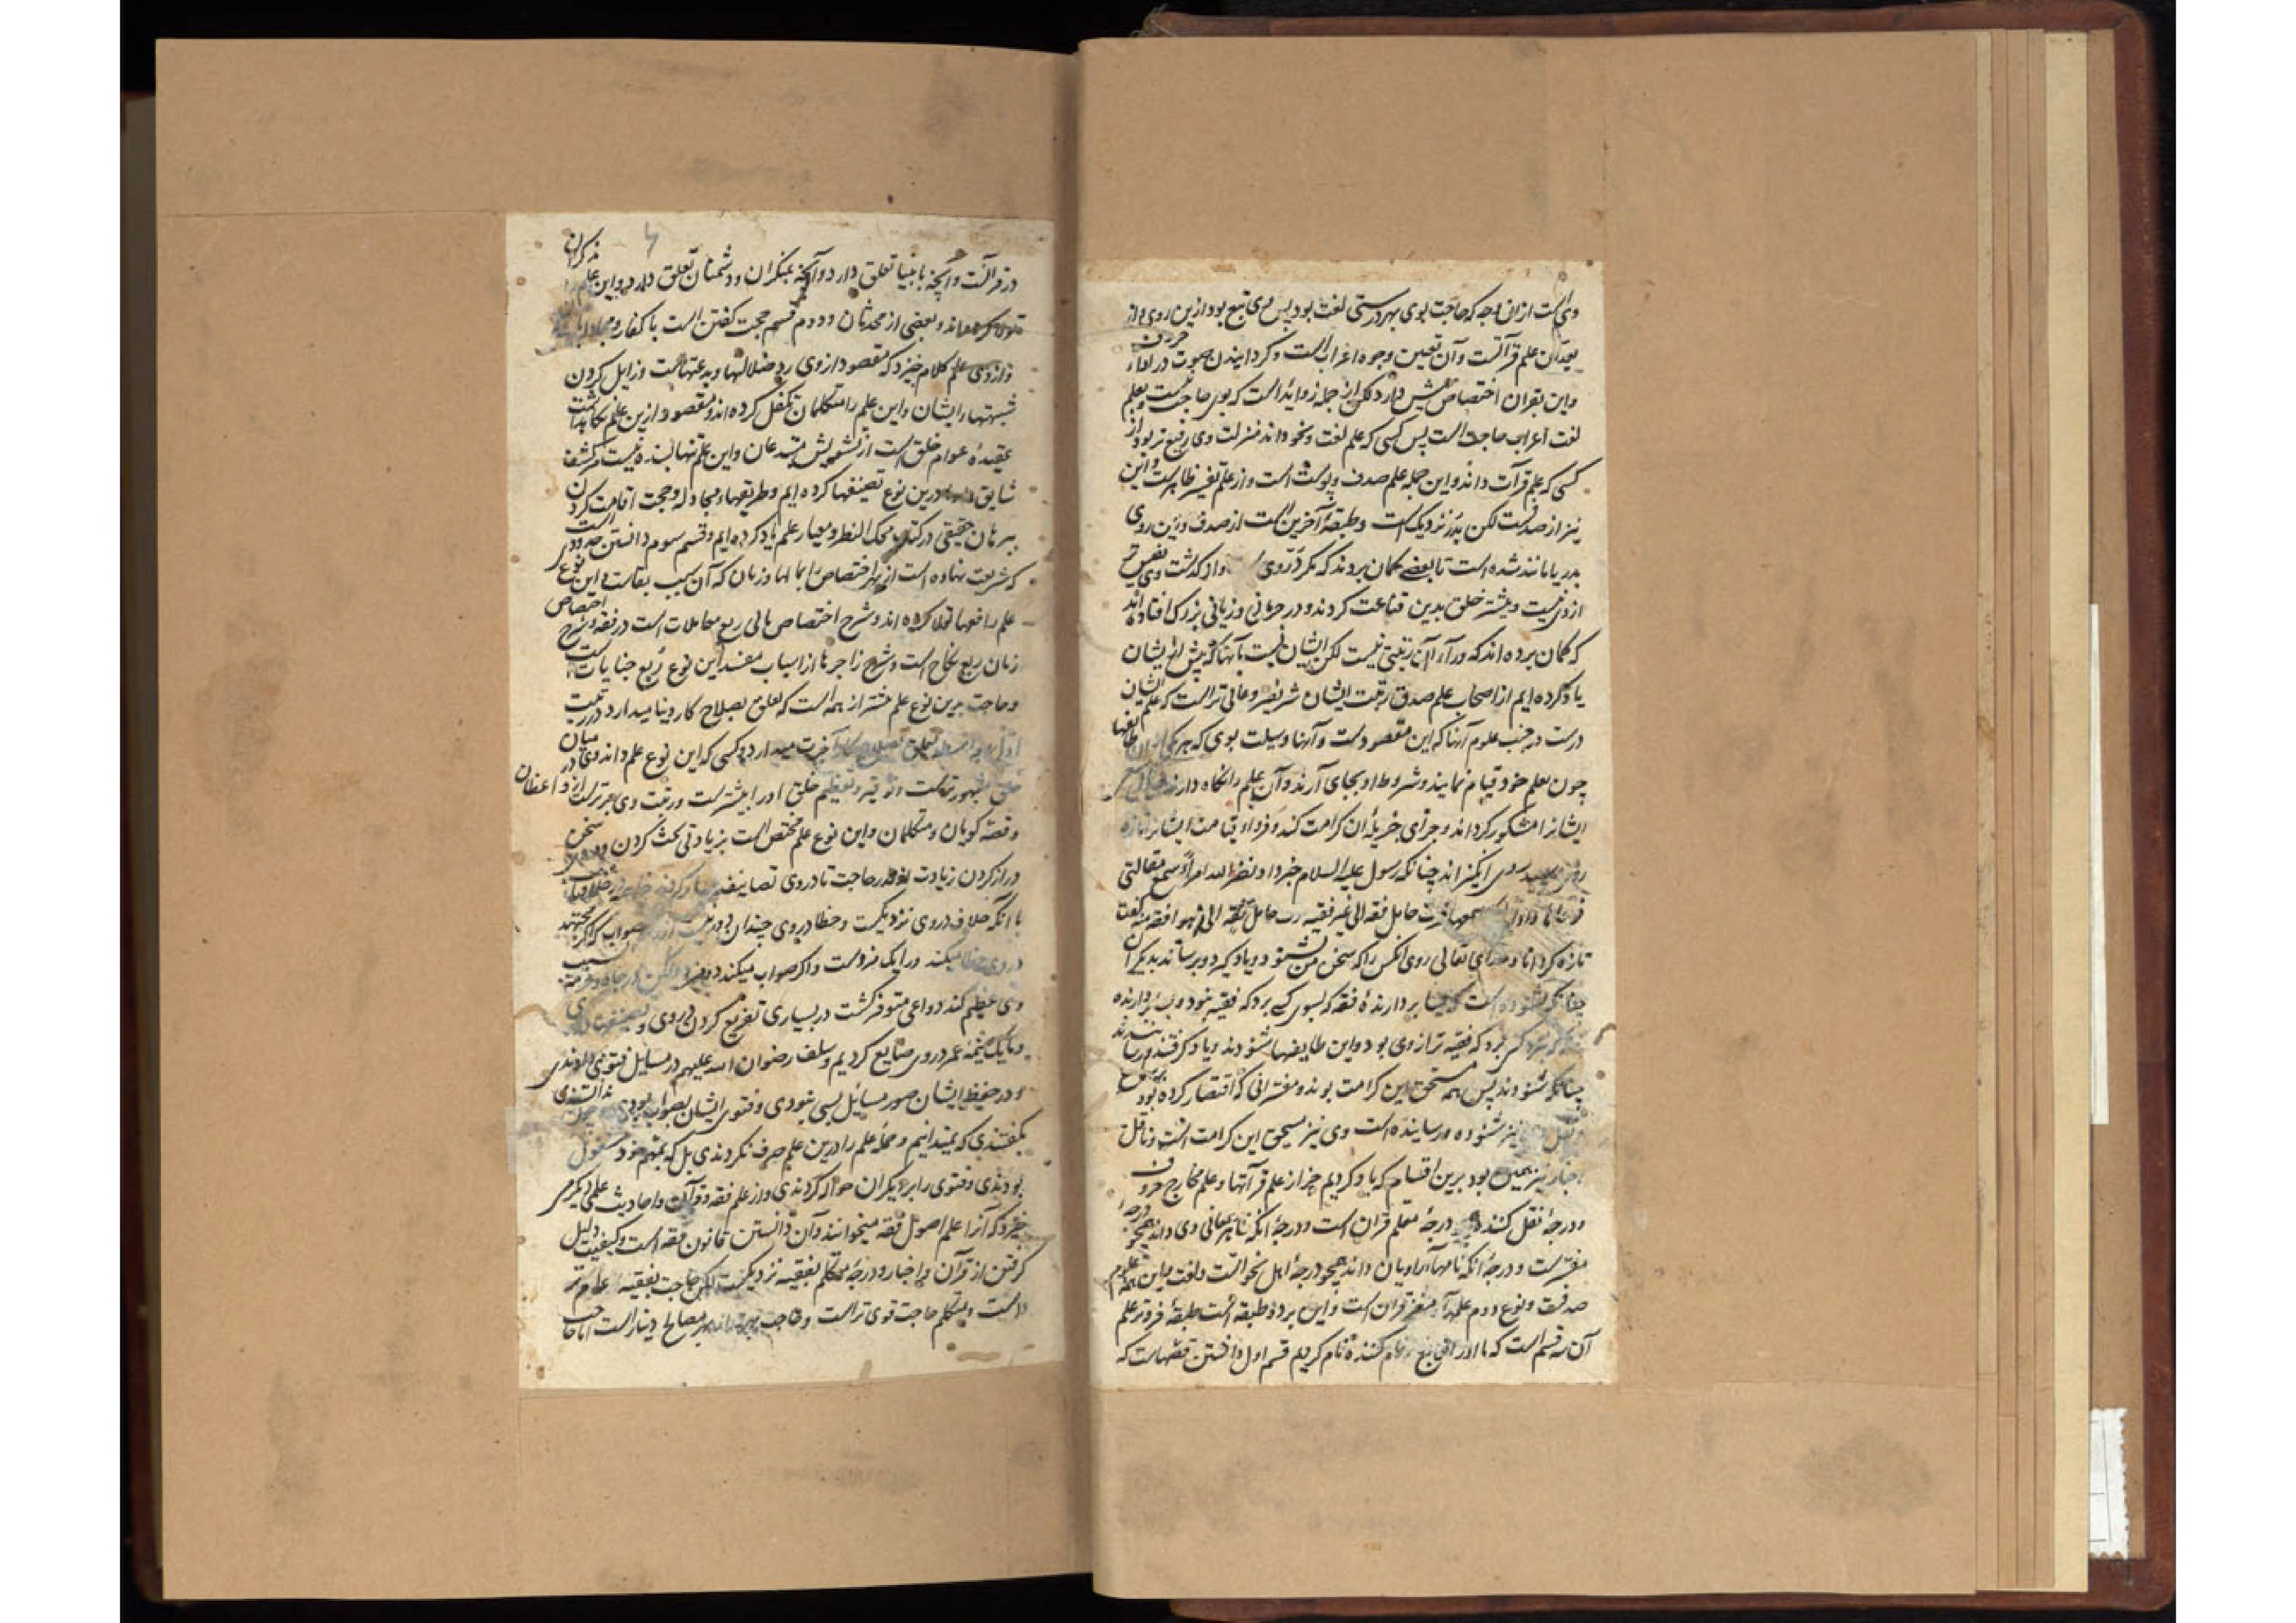 وی است از ان وجه که حاجت بوی بهر درستی لغت بود پس وی تبع بود ازین روی و از
بعد آن علم قرآآتست و آن تعیین وجوه اعراب است و گردانیدن صوت در اداء حروف
واین بقران اختصاص بیش دارد لکن از جمله زوایداست که بوی حاجت نیست و بعلم
لغت اعراب حاجت است پس کسی که علم لغت و نحو داند منزلت وی رفیع تر بود از
کسی که علم قرآت داند واین جمله علم صدف و پوست است و از علم تفسیر ظاهرست واین
نیز از صدفست لکن بدر نزدیک است و طبقهٔ آخرین است از صدف و بین روی
بدر یا مانند شده است تا بعضی گمان بردند که مگر در وی از گذشت وی نفیس تر
ازوی نیست و بیشتر خلق بدین قناعت کردند و در حرمانی و زیانی بزرگ افتاده اند
که گمان برده اند که ورآء آن رتبتی نیست لکن ایشان نسبت بآنها که پیش از ایشان
یاد کرده ایم از اصحاب علم صدق رتبت ایشان شریفتر وعالی تر است که علم ایشان
درست در جنب علوم آنها که این مقصودست و آنها وسیلت بوی که هر یکی از ان طایفها
چون بعلم خود قیام نمایند و شروط او بجای آرند و آن علم را نگاه دارند
ایشانرا مشکور گرداند و جزای جزیل ان کرامت کند و فردا و قیامت ایشانرا تازه
روی سپید روی انگیزاند چنانکه رسول علیه السلام خبر داد و نضر الله امرأ سمع مقالتی
فوعاها و اداها کما سمعها فرب حامل فقه الی غیر فقیه رب حامل فقه الی من هو افقه منه گفت
تازه گرداناد خدای تعالی روی انکس را که سخن من بشنود و یاد گیرد و برساند بدیگران
چنانکه شنوده است که بسا بردارندهٔ فقه که بسوی کسی برد که فقیه نبود و بسا بردارنده
فقه که بنزد کسی برد که فقیه تر ازوی بود و این طایفها شنودند و یاد گرفتند و رسانیدند
چنانکه شنودند پس همه مستحق این کرامت بوند و مفسرانی که اقتصار کرده بود بر
نقل نیز شنوده و رسانیده است وی نیز مستحق این کرامت است و ناقل
اخبار نیز همین بود برین اقسام که یاد کردیم جز از علم قرآتها و علم مخارج حروف
و درجهٔ نقل کننده درجهٔ معلم قران است و درجهٔ انکه ظاهر معانی وی داند همچو درجهٔ
مفسرست و درجهٔ انکه نامهاء راویان داند همچو درجهٔ اهل نحو است و لغت و این همه علوم
صدفست و نوع دوم علمهآء مغز قران است و این بر دو طبقه است طبقهٔ فروتر علم
آن سه قسم است که ما اورا توابع و تمام کننده نام کردیم قسم اول دانستن قصهاست که
در قرآنست و آنچه بانبیا تعلق دارد و آنچه بمنکران و دشمنان تعلق دارد و این علم را مذکران
تولا کرده اند و بعضی از محدثان و دوم قسم حجت گفتن است با کفار و مجادله با
و از وی علم کلام خیزد که مقصود از وی رد ضلالتها و بدعتهاست و زایل کردن
شبهتها را ایشان و این علم را متکلمان تکفل کرده اند و مقصود ازین علم نگاه داشت
عقیدهٔ عوام خلق است از تشویش مبتدعان و این علم تنها بسنده نیست در کشف
شایق درین نوع تصنیفها کرده ایم و طریقهاء مجادله و حجت اقامت کردن
ببرهان حقیقی در کتاب محک النظر و معیار علم یاد کرده ایم و قسم سوم دانستن حدود است
که شریعت نهاده است از بهر اختصاص را بما لها و زنان که آن سبب بقاست و این نوع
علم را فقها تولا کرده اند و شرح اختصاص مالی ربع معاملات است در فقه و شرح اختصاص
زنان ربع نکاح است و شرح زاجرها از اسباب مفسد این نوع ربع جنایات است
و حاجت برین نوع علم بیشتر از همه است که تعلق بصلاح کار دنیا میدارد در رتبت
اول و بواسطه تعلق بصلاح کار آخرت میدارد و کسی که این نوع علم داند وی در میان
خلق مشهورترست و توقیر و تعظیم خلق او را بیشترست و رتبت وی برترست از واعظان
و قصه گویان و متکلمان و این نوع علم مختص است بزیادتی بحث کردن و سخن
دراز کردن زیادت از قدر حاجت تا در وی تصانیف بسیار کردند خاصه در خلافیات
با انکه خلاف در وی نزدیکست و خطا در وی چندان دور نیست از صواب که اگر مجتهد
در وی خطا میکند ورا یک مزدست و اگر صواب میکند دو مزد ولکن از جاه و حرمت بسبب
وی عظیم کند دواعی متوفر گشت در بسیاری تفریع کردن در وی و تصنیفها
و ما یک نیمه عمر در وی ضایع کردیم و سلف رضوان الله علیهم در مسایل فتوی
و در حفظ ایشان صور مسائل بسی نبودی و فتوی ایشان بصواب بودی
بگفتندی که نمیدانیم و جملهٔ علم را درین علم صرف نکردندی بل که بمهم خود مشغول
بودندی و فتوی را بر دیگران حواله کردندی و از علم فقه و قرآن و احادیث علمی دیگر می
خیزد که آنرا علم اصول فقه میخوانند و آن دانستن قانون فقه است و کیفیت دلیل
گرفتن از قرآن و اخبار و درجهٔ متکلم بفقیه نزدیکست لکن حاجت بفقیه عام تر
است و بمتکلم حاجت قوی تر است و حاجت بهر دو از بهر مصالح دنیا است اما حاجت